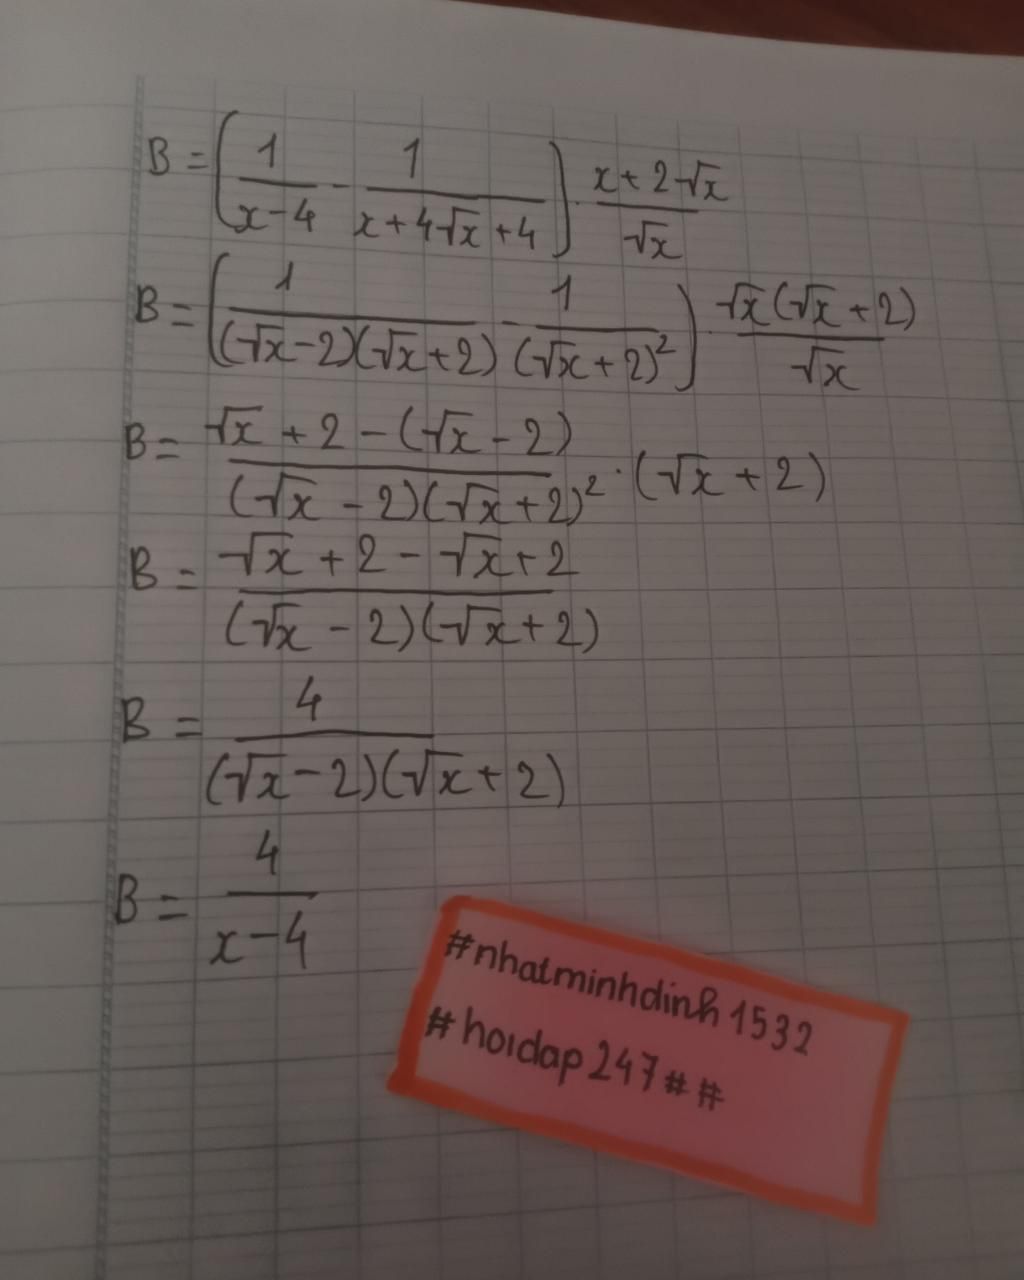 B = (1/(x-4) - 1/(x+4√x+4)) . (x+2√x)/√x
B = (1/((√x-2)(√x+2)) - 1/(√x+2)²) . √x(√x+2)/√x
B = (√x+2-(√x-2))/((√x-2)(√x+2)²) . (√x+2)
B = (√x+2-√x+2)/((√x-2)(√x+2))
B = 4/((√x-2)(√x+2))
B = 4/(x-4)
#nhatminhdinh1532
#hoidap247##